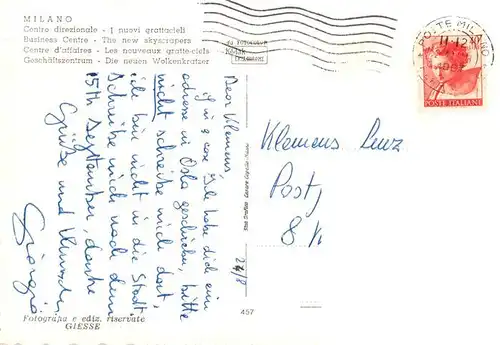 MILANO
Centro direzionale - I nuovi grattacieli
Business Centre - The new skyscrapers
Centre d'affaires - Les nouveaux gratte-ciels
Geschäftszentrum - Die neuen Wolkenkratzer
POSTE MILANO
11-12
POSTE ITALIANE
Kodak
Dear Klemens,
if in a case Ich habe dich ein
adresse in Oslo geschrieben, bitte
nicht schreibe mich dort,
ich bin nicht in die Stadt
Schreibe mich nach dem
15th September, danke
Grüße und
Giorgio
24/8
Klemens Lenz
Post,
8
Fotografia e ediz. riservate
GIESSE
457